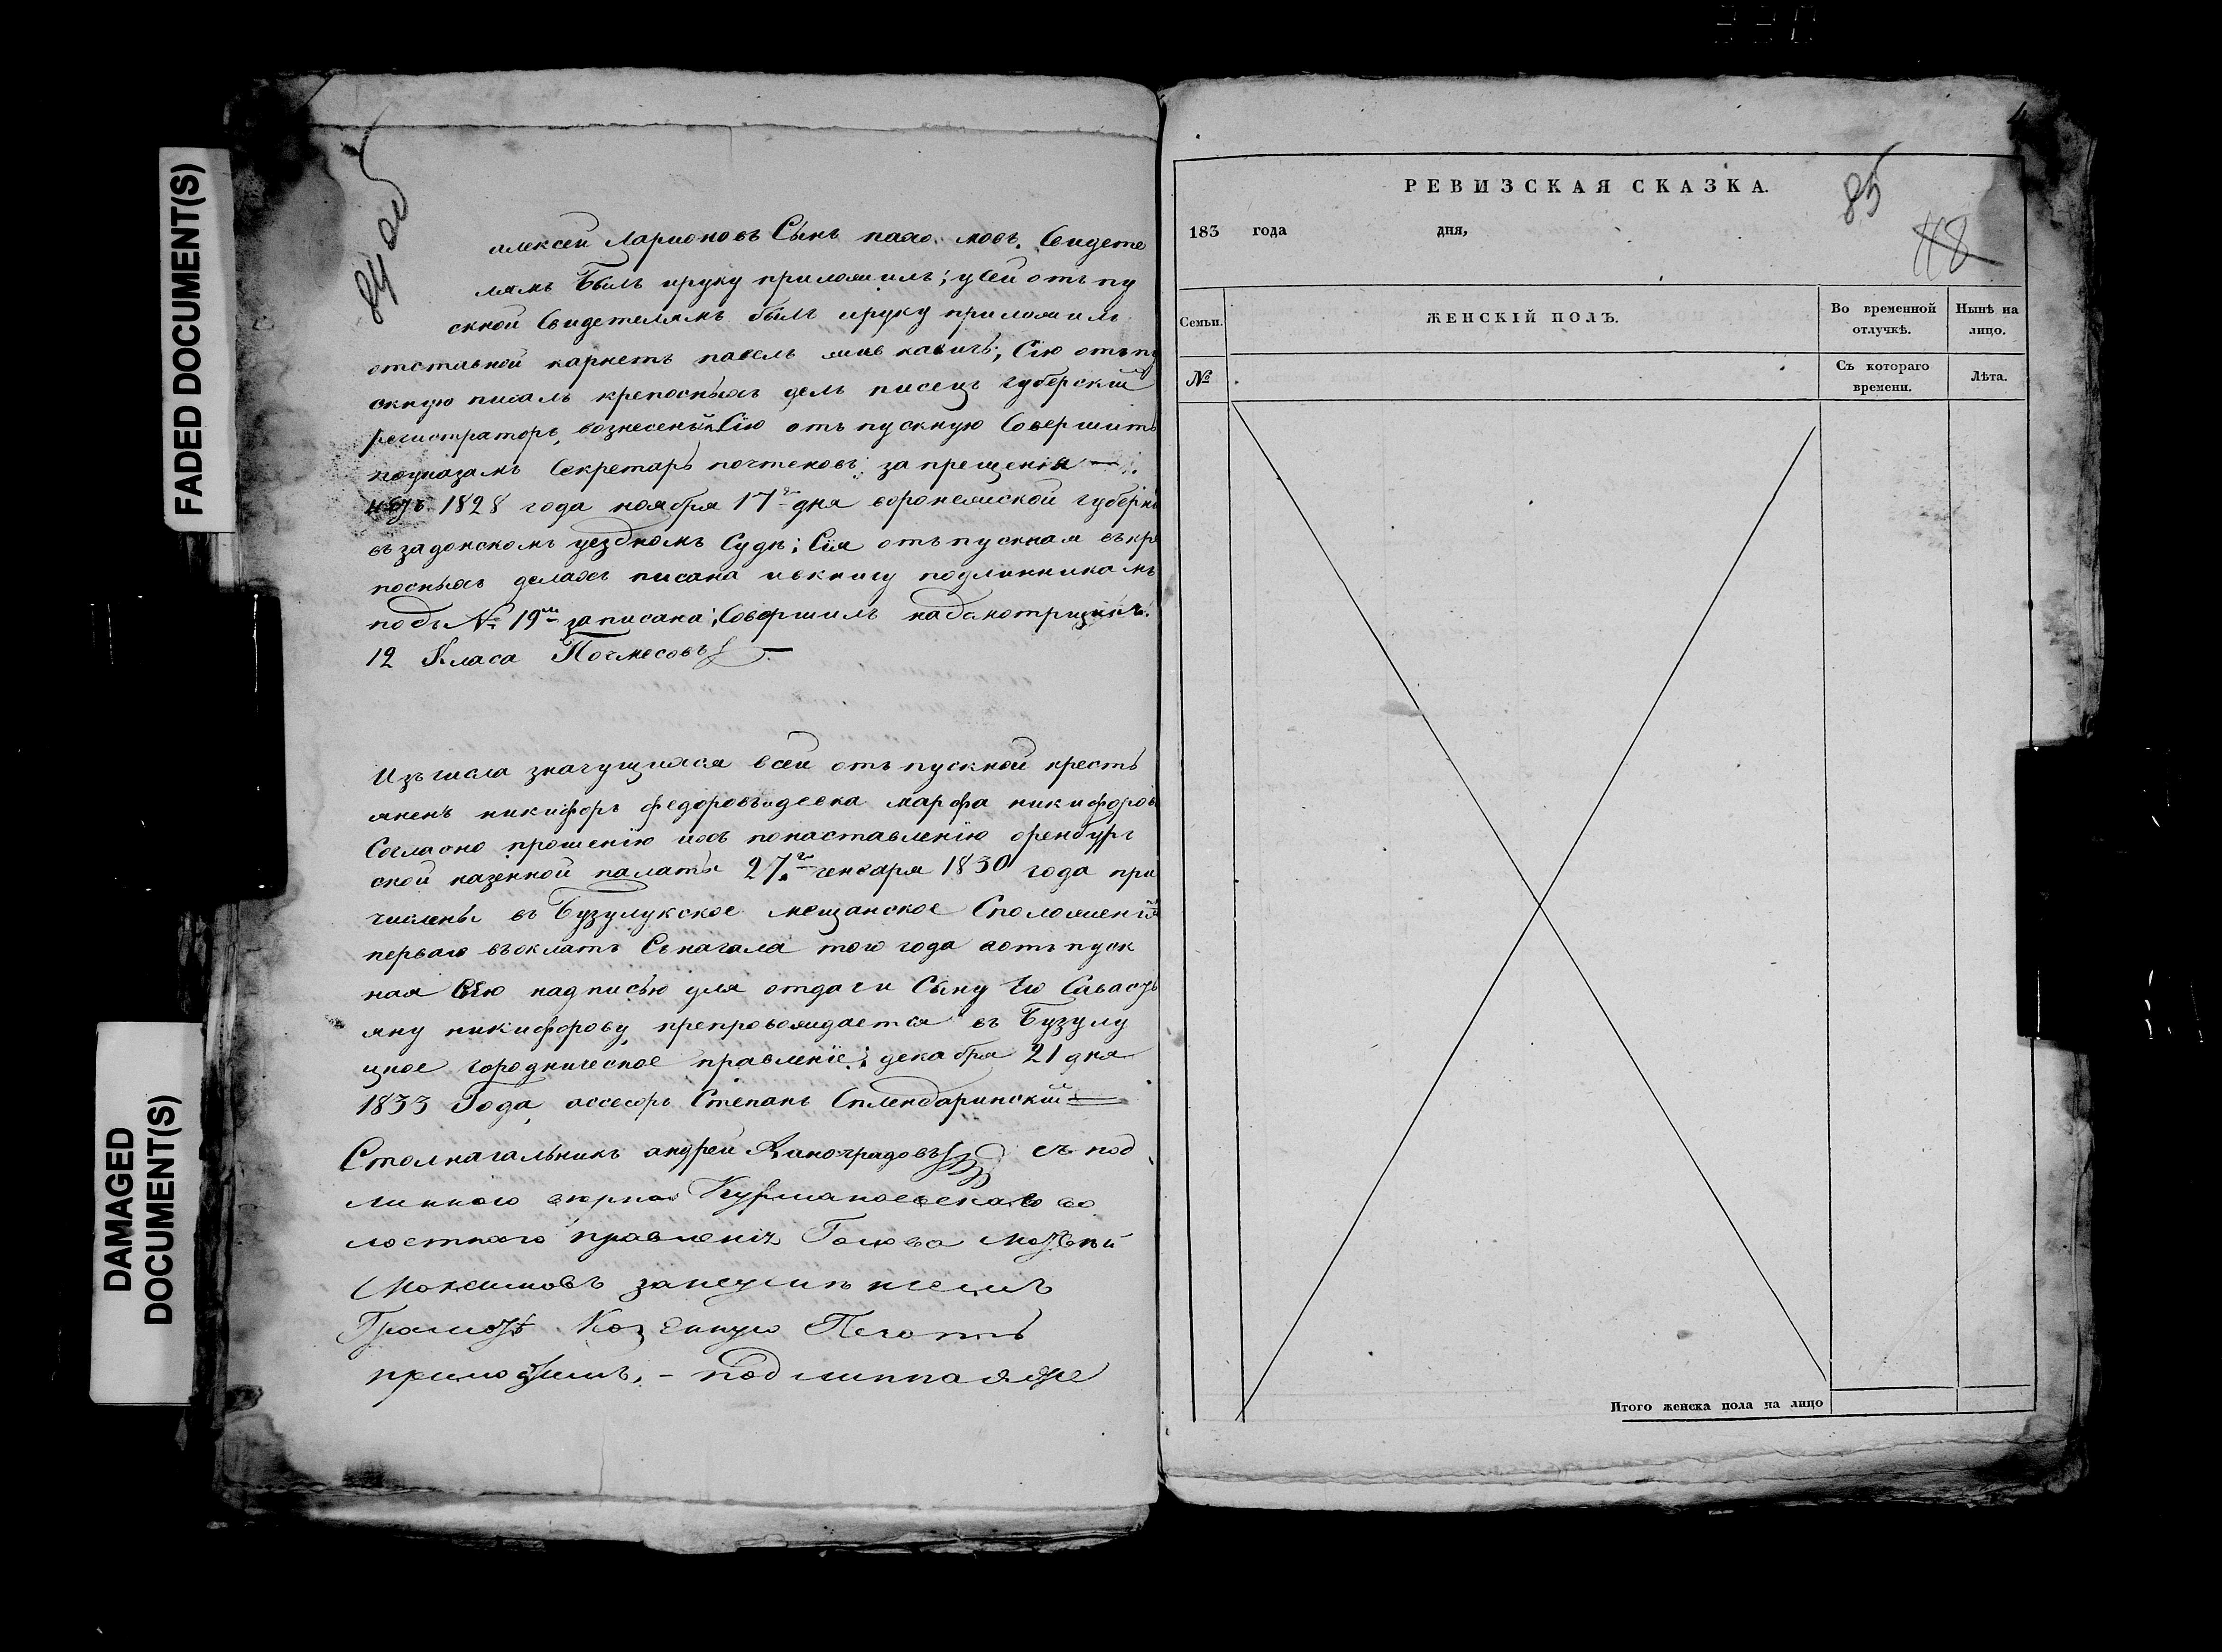 FADED DOCUMENT(S)
DAMAGED
DOCUMENT(S)
84 об
алексей Ларионовъ Сынъ пахо мовъ. Свидете
лямъ Былъ ируку приложилъ; усей отъ пу
скной Свидетелямъ былъ ируку приложилъ
отставной карнетъ павелъ Сію отъпу
скную писалъ крепосныхъ делъ писецъ губерский
регистраторъ вознесенъский Сію отъ пускную Совершить
поуказамъ Секретарь почтековъ: за прещения —
нѣтъ 1828 года ноября 17го дня воронежской губерни
въ задонскомъ уездномъ Суде; Сия отъ пускная въкре
посныхъ делахъ писана ивкнигу подлинникамъ
подъ № 19м записана; Совершилъ надсмотрщикъ
12 Класа
Изъ числа значущихся всей отъ пускной кресть
яненъ никифоръ федоровъидевка марфа никифоров
Согласно прошенію ихъ понаставленію оренбург
ской казенной палаты 27го генваря 1830 года при
числены въ Бузулукское мещанское Сположения
перваго въоклатъ Съначала того года аотъ пуск
ная Сею надписью для отдачи Сыну Его Савасть
яну никифорову, препровождается въ Бузулу
цкое городническое правленіе; декабря 21 дня
1833 Года, ассесоръ Степанъ Сплендаринский
Столначальникъ андрей Виноградовъ съ под
линнаго верно Курманаевскаго во
лостнаго правленія Голова
Максимовъ занеумением
Грамотѣ Казенную Печать
приложилъ, - подлинная же
РЕВИЗСКАЯ СКАЗКА.
85
118
183 года дня,
Семьи.
ЖЕНСКІЙ ПОЛЪ.
Во временной
отлучкѣ.
Нынѣ на
лицо.
№
Съ котораго
времени.
Лѣта.
Итого женска пола на лицо